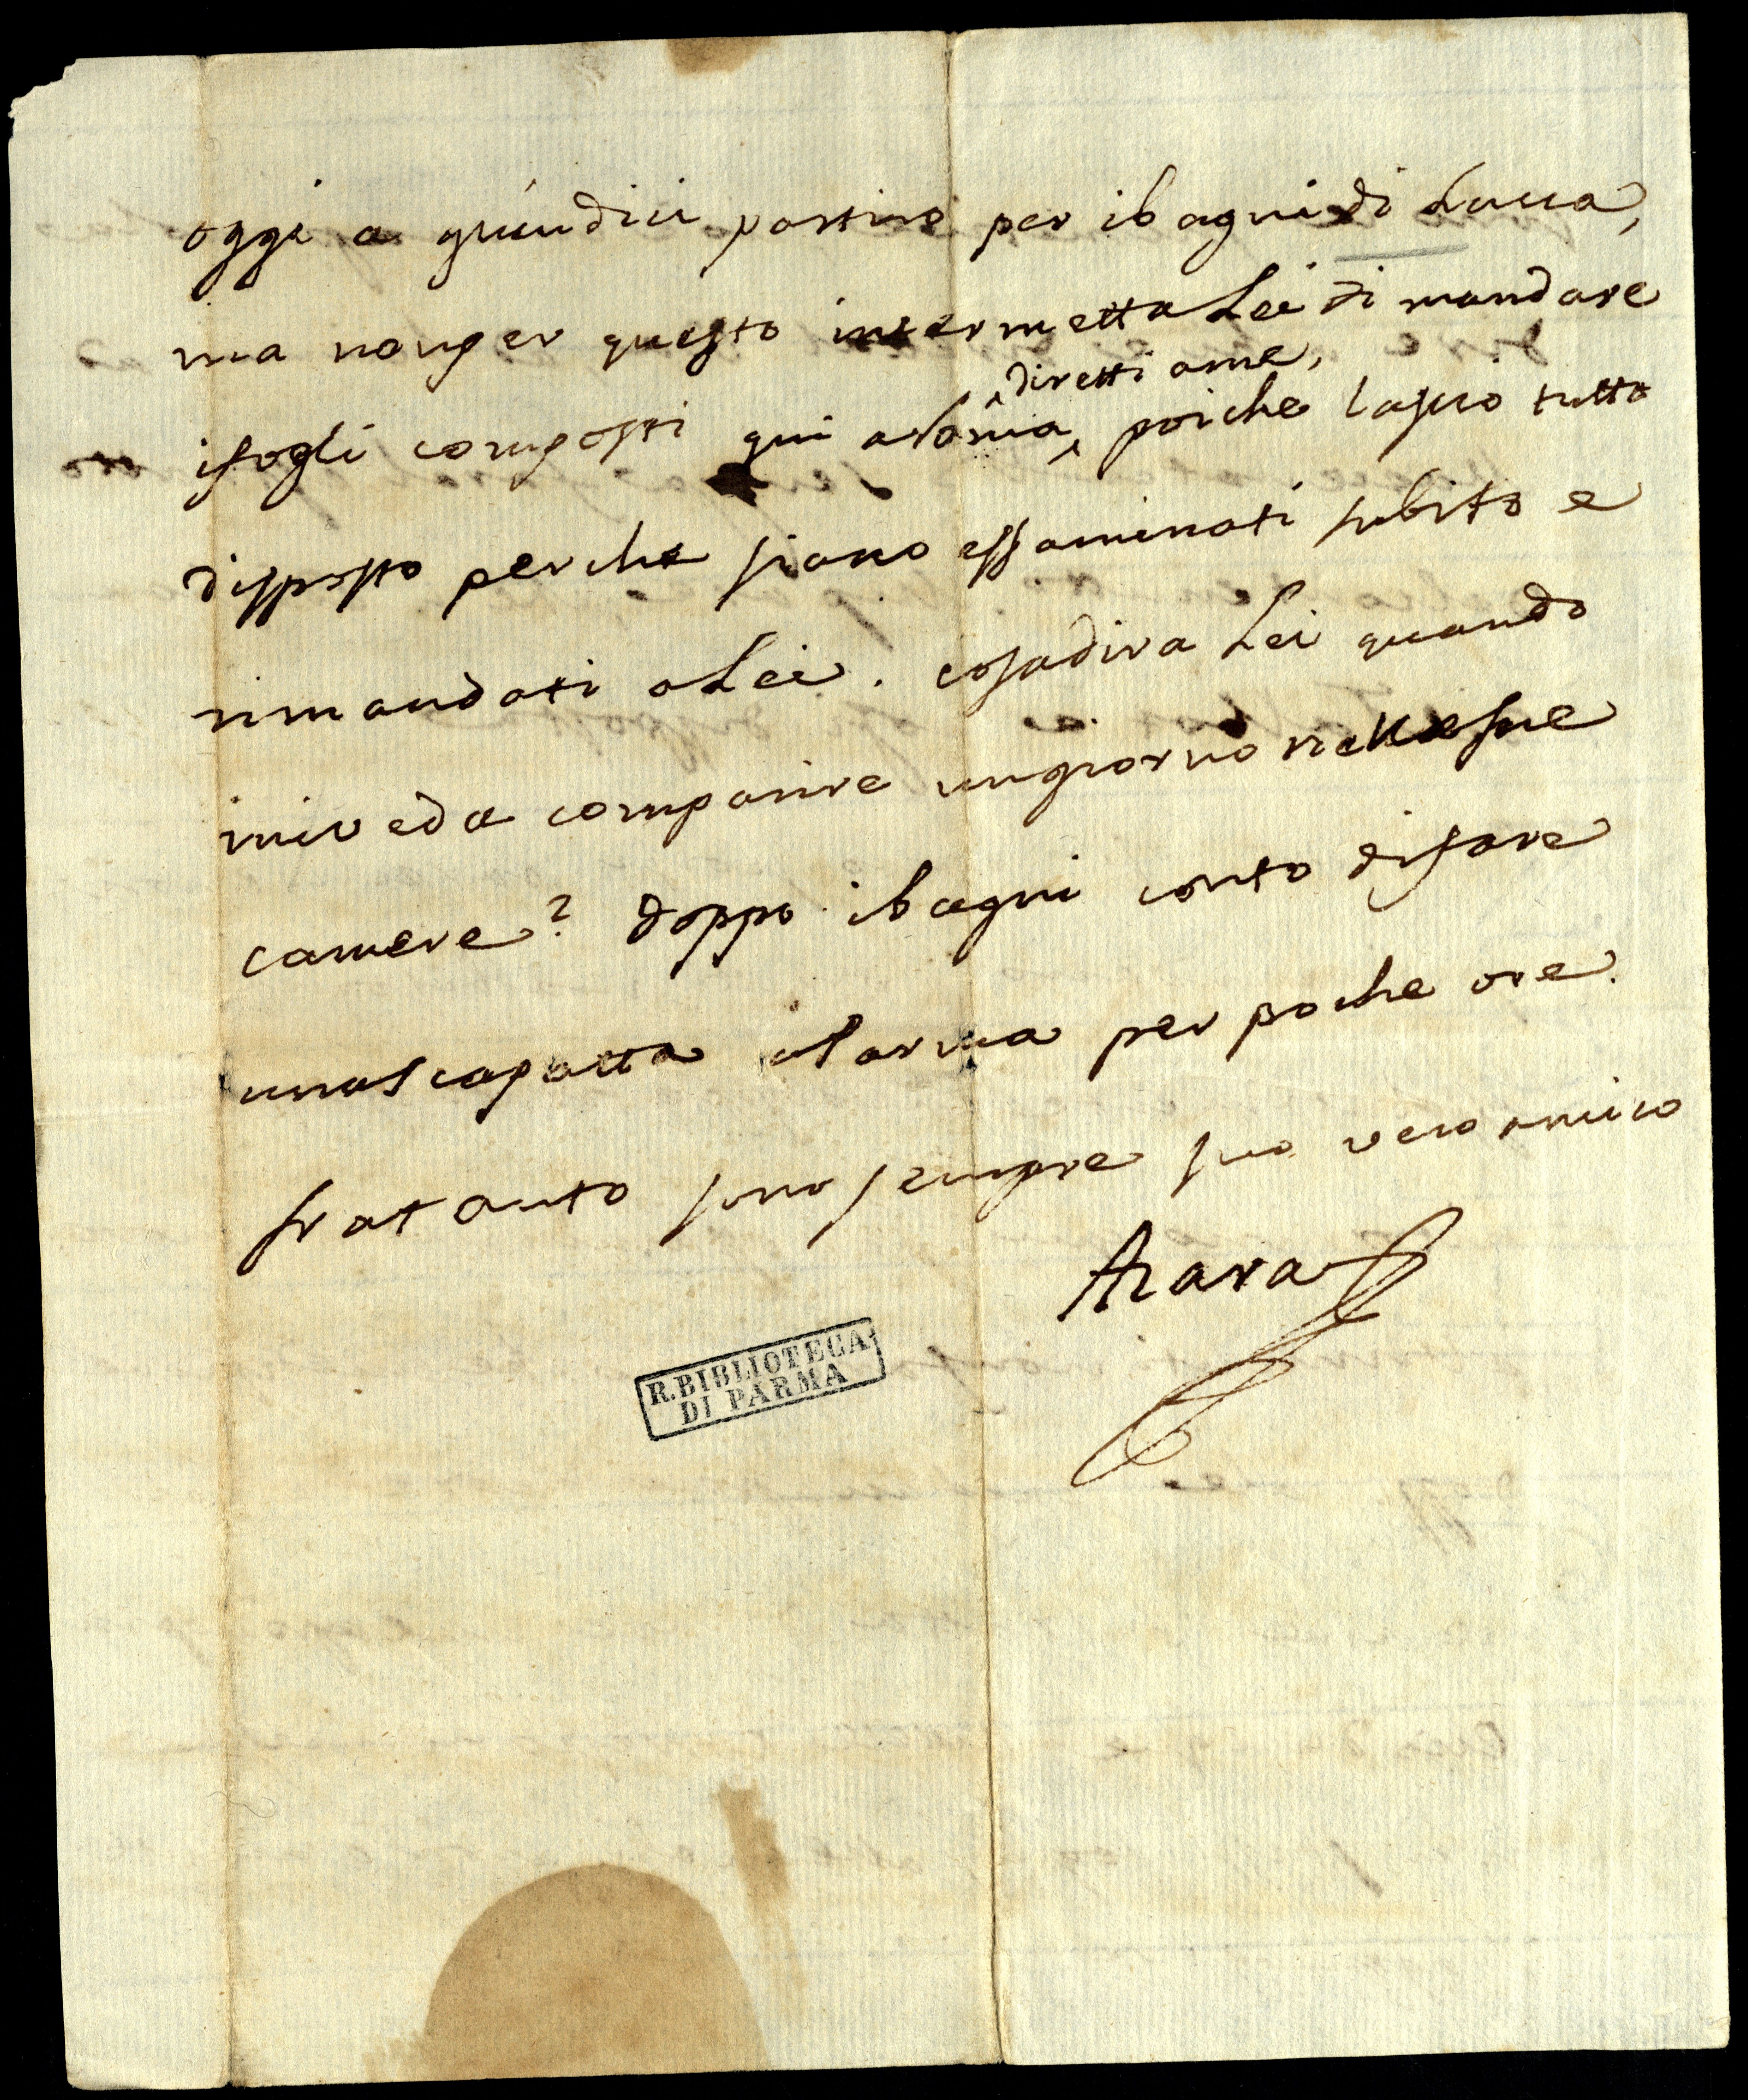 oggi a quindici partiro per ibagni di Lucca,
ma nonper questo intermetta Lei di mandare
ifogli composti qui aRoma, diretti ame, poiche lascio tutto
disposto perche siano essaminati subito e
rimandati aLei. cosadira Lei quando
miveda comparire ungiorno nellesue
camere? doppo ibagni conto difare
unascapatta aParma per poche ore.
fratanto sono sempre suo vero amico
Azara
R. BIBLIOTECA
DI PARMA